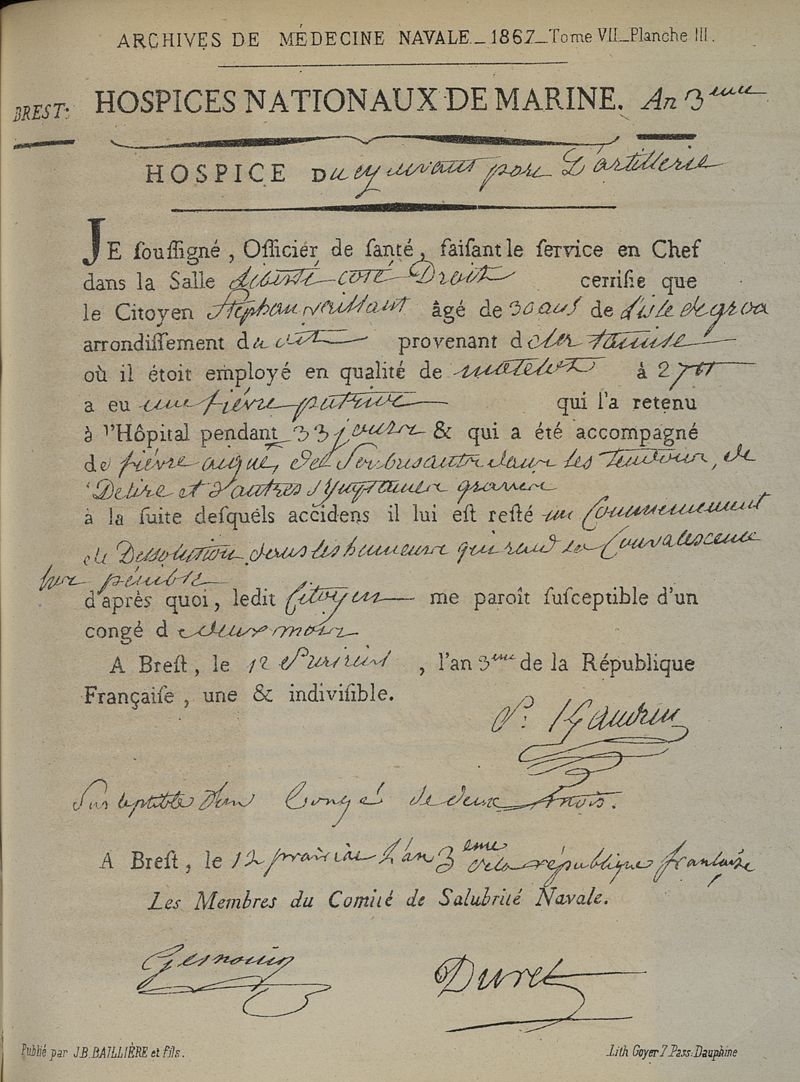 ARCHIVES DE MÉDECINE NAVALE_1867_Tome VII_Planche III.
BREST: HOSPICES NATIONAUX DE MARINE. An 3eme
HOSPICE Du pour L'artillerie
JE souſſigné, Officier de ſanté, faiſant le ſervice en Chef
dans la Salle liberté coté Droit certifie que
le Citoyen Stephan vaillant âgé de 30 ans de L'isle de groa
arrondiſſement du provenant de la
où il étoit employé en qualité de matelot à 27tt
a eu une fiévre putride qui l'a retenu
à l'Hôpital pendant 33 jours & qui a été accompagné
de fiévre aiguë, des Soubresauts dans les Tendons, de
Delire et d'autres Symptomes graves
à la ſuite deſquels accidens il lui eſt reſté un Commencement
de Dissolution dans les humeurs qui rend sa Convalescence
tres penible
d'après quoi, ledit Citoyen me paroît ſuſceptible d'un
congé d e deux mois
A Breſt, le 12 Prairial, l'an 3eme de la République
Françaiſe, une & indiviſible.
Susceptible d'un Congé de deux mois.
A Breſt, le 12 prairial L'an 3eme de la république française
Les Membres du Comité de Salubrité Navale.
Gesnouin Duret
Publié par J.B. BAILLIÈRE et fils. Lith Goyer 7 Pass. Dauphine